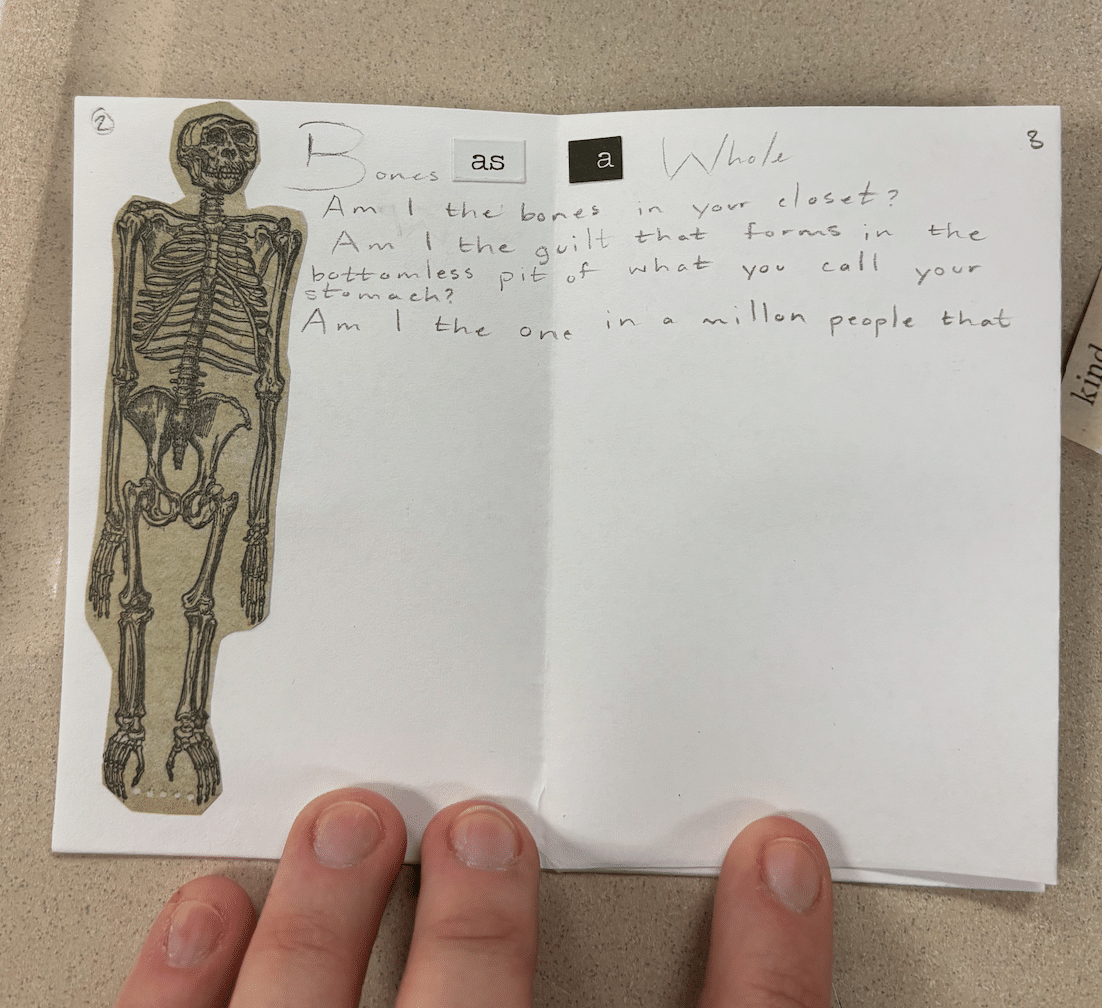 2
Bones as a Whole
8
Am I the bones in your closet?
Am I the guilt that forms in the
bottomless pit of what you call your
stomach?
Am I the one in a millon people that
kind